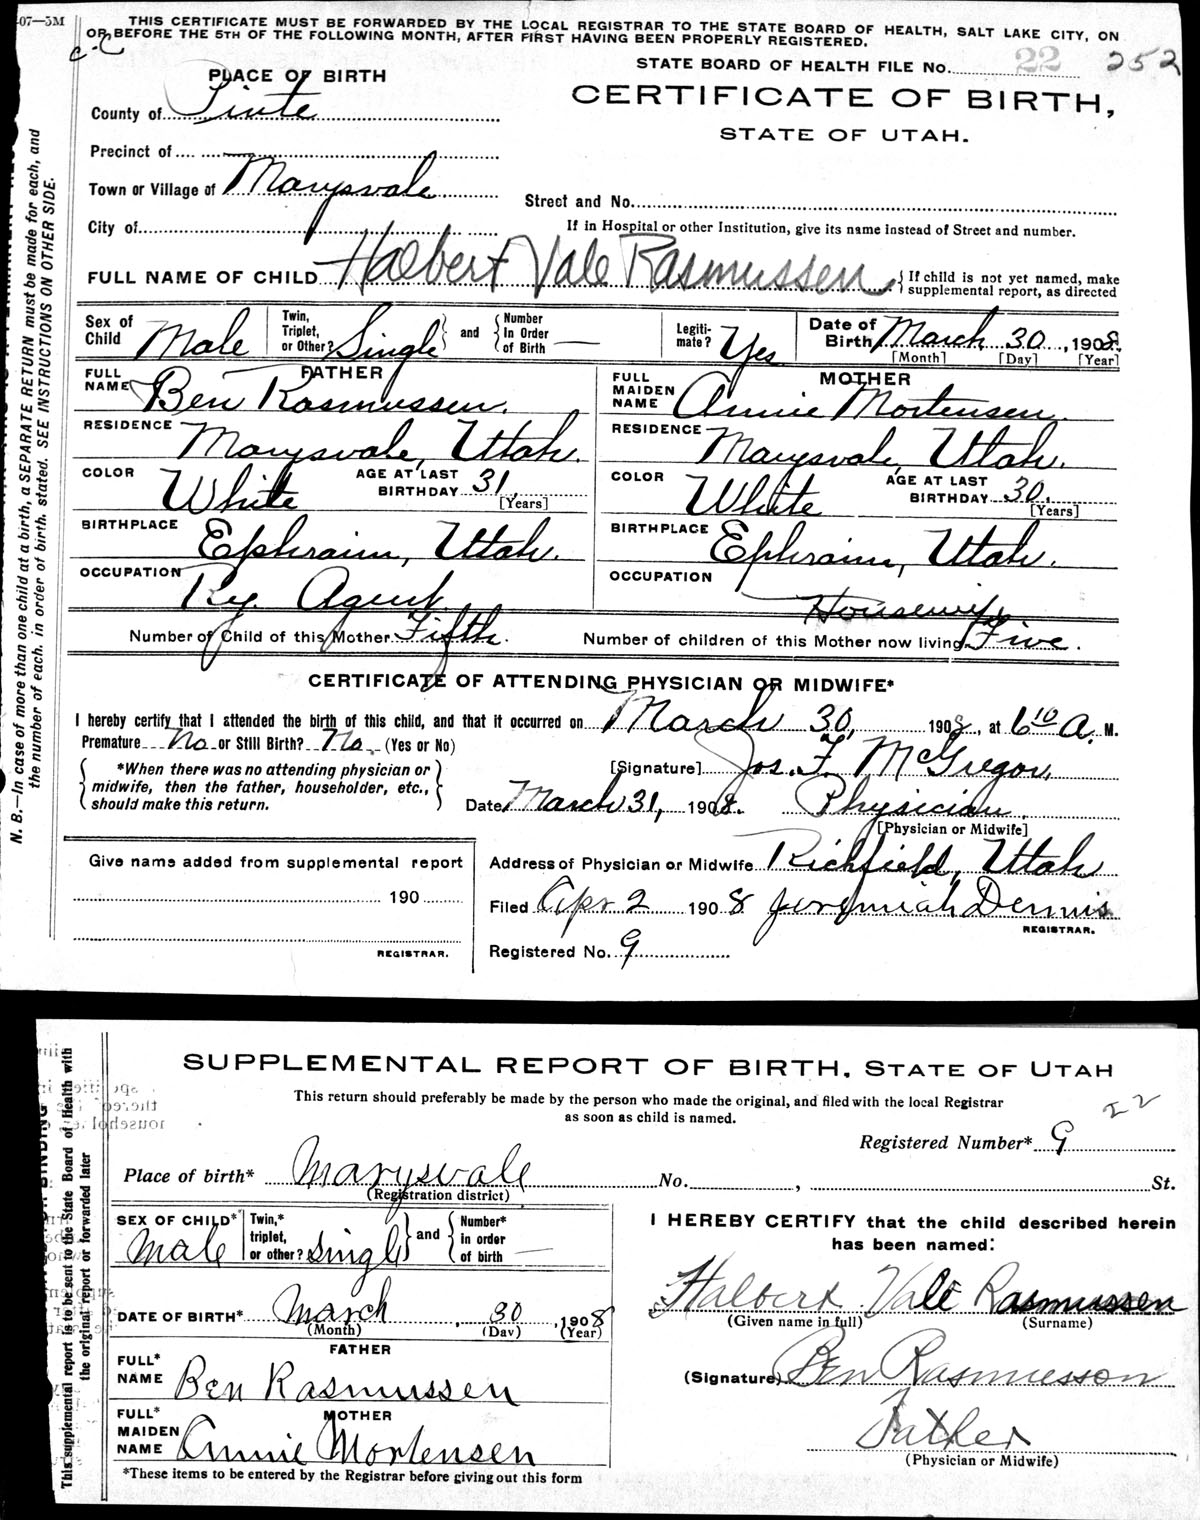 07—5M
THIS CERTIFICATE MUST BE FORWARDED BY THE LOCAL REGISTRAR TO THE STATE BOARD OF HEALTH, SALT LAKE CITY, ON
OR BEFORE THE 5TH OF THE FOLLOWING MONTH, AFTER FIRST HAVING BEEN PROPERLY REGISTERED.
STATE BOARD OF HEALTH FILE No. 22 252
PLACE OF BIRTH
CERTIFICATE OF BIRTH,
County of Piute
STATE OF UTAH.
Precinct of
Town or Village of Marysvale
Street and No.
City of
If in Hospital or other Institution, give its name instead of Street and number.
FULL NAME OF CHILD Halbert Vale Rasmussen { If child is not yet named, make
supplemental report, as directed
Sex of Child Male Twin, Triplet, or Other? Single } and { Number In Order of Birth — Legiti-mate? Yes Date of Birth March 30, 1908.
[Month] [Day] [Year]
FATHER
FULL NAME Ben Rasmussen.
RESIDENCE Marysvale, Utah.
COLOR White AGE AT LAST BIRTHDAY 31
[Years]
BIRTHPLACE Ephraim, Utah.
OCCUPATION Ry. Agent.
MOTHER
FULL MAIDEN NAME Annie Mortensen.
RESIDENCE Marysvale, Utah.
COLOR White AGE AT LAST BIRTHDAY 30.
[Years]
BIRTHPLACE Ephraim, Utah.
OCCUPATION Housewife
Number of Child of this Mother Fifth. Number of children of this Mother now living Five.
CERTIFICATE OF ATTENDING PHYSICIAN OR MIDWIFE*
I hereby certify that I attended the birth of this child, and that it occurred on March 30, 1908, at 6 10 A. M.
Premature No or Still Birth? No. (Yes or No)
{ *When there was no attending physician or
midwife, then the father, householder, etc.,
should make this return. }
[Signature] Jos. F. McGregor,
Date March 31, 1908. Physician.
[Physician or Midwife]
Give name added from supplemental report
190
REGISTRAR.
Address of Physician or Midwife Richfield, Utah
Filed Apr 2 1908 Jeremiah Dennis
REGISTRAR.
Registered No. 9
N. B.—In case of more than one child at a birth, a SEPARATE RETURN must be made for each, and
the number of each, in order of birth, stated. SEE INSTRUCTIONS ON OTHER SIDE.
SUPPLEMENTAL REPORT OF BIRTH, STATE OF UTAH
This return should preferably be made by the person who made the original, and filed with the local Registrar
as soon as child is named.
22
Registered Number* 9
Place of birth* Marysvale No. , St.
(Registration district)
SEX OF CHILD* Male Twin,* triplet, or other? Single } and { Number* in order of birth —
DATE OF BIRTH* March, 30, 1908
(Month) (Day) (Year)
FATHER
FULL* NAME Ben Rasmussen
MOTHER
FULL* MAIDEN NAME Annie Mortensen
*These items to be entered by the Registrar before giving out this form
I HEREBY CERTIFY that the child described herein
has been named:
Halbert Vale Rasmussen
(Given name in full) (Surname)
(Signature) Ben Rasmusson
Father
(Physician or Midwife)
This supplemental report is to be sent to the State Board of Health with
the original report or forwarded later